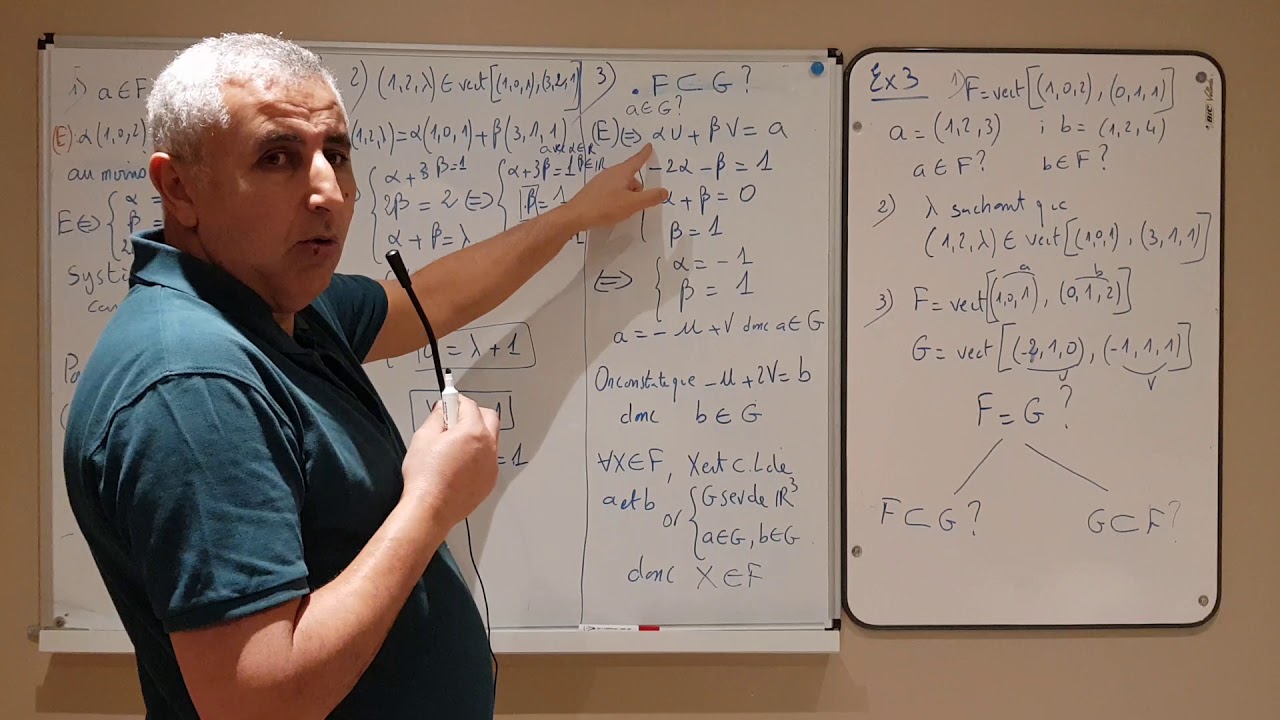 1) a ∈ F
(E) α(1,0,2)
au moins
E ⇔ { α =
β =
2
Systè
ca
2) (1,2,λ) ∈ vect[(1,0,1),(3,1,1)]
1,2,λ) = α(1,0,1) + β(3,1,1)
avec α ∈ ℝ
β ∈ ℝ
{ α + 3β = 1
2β = 2
α + β = λ
⇔ { α + 3β = 1
β = 1
= λ + 1
1
= 1
3) . F ⊂ G ?
a ∈ G ?
(E) ⇔ αu + βV = a
-2α - β = 1
α + β = 0
β = 1
⇔ { α = -1
β = 1
a = -u + V donc a ∈ G
On constate que -u + 2V = b
donc b ∈ G
∀X ∈ F, X est C.L de
a et b or { G sev de ℝ³
a ∈ G, b ∈ G.
donc X ∈ F
Ex 3 1) F = vect[(1,0,2), (0,1,1)]
a = (1,2,3) ; b = (1,2,4)
a ∈ F ? b ∈ F ?
2) λ sachant que
(1,2,λ) ∈ vect[(1,0,1), (3,1,1)]
3) F = vect[(1,0,1), (0,1,2)]
a b
G = vect[(-2,1,0), (-1,1,1)]
u V
F = G ?
F ⊂ G ? G ⊂ F ?
BIC